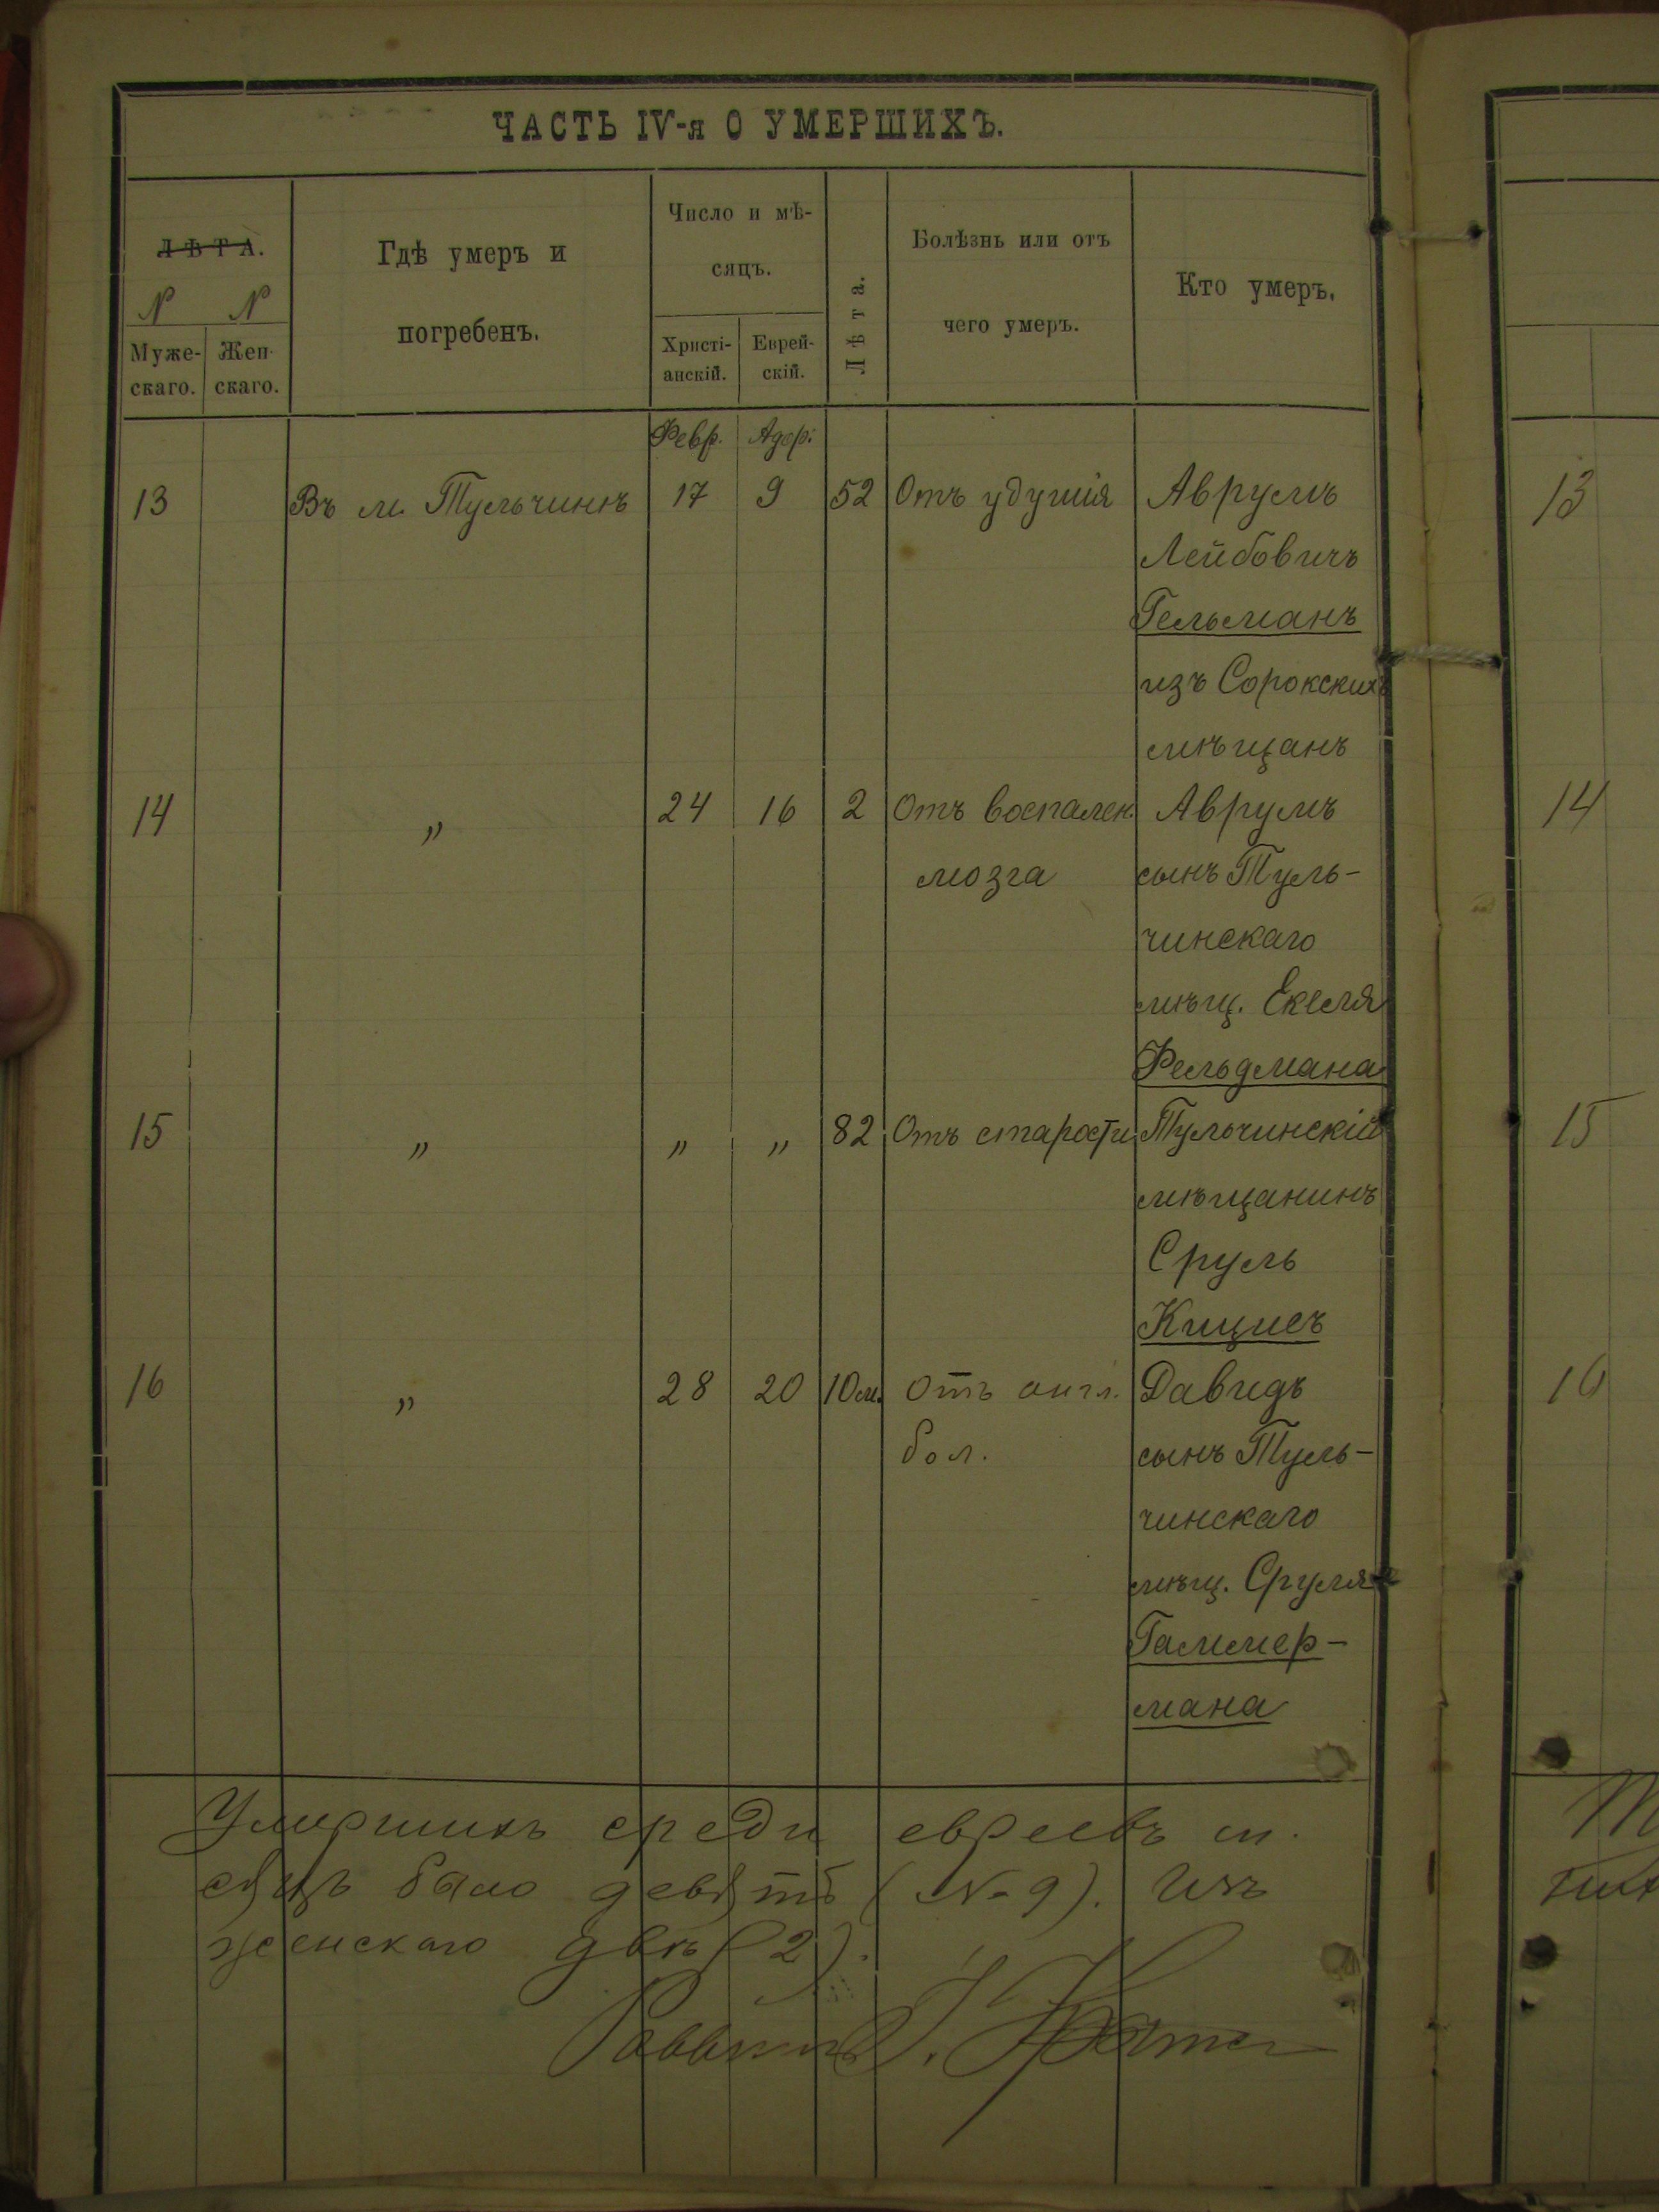 ЧАСТЬ IV-я О УМЕРШИХЪ.
ЛѢТА.
N N
Муже-скаго. Жен-скаго.
Гдѣ умеръ и
погребенъ.
Число и мѣ-
сяцъ.
Христі-анскій. Еврей-скій.
Лѣта.
Болѣзнь или отъ
чего умеръ.
Кто умеръ.
Февр. Адор:
13 Въ м. Тульчинѣ 17 9 52 Отъ удушія Аврумъ 13
Лейбовичъ
Гельманъ
изъ Сорокскихъ
мѣщанъ
14 „ 24 16 2 Отъ воспален. Аврумъ 14
мозга сынъ Туль-
чинскаго
мѣщ. Екеля
Фельдмана
15 „ „ „ 82 Отъ старости Тульчинскій 15
мѣщанинъ
Сруль
Кицисъ
16 „ 28 20 10м. Отъ англ. Давидъ 16
бол. сынъ Туль-
чинскаго
мѣщ. Сруля
Гаммер-
мана
Умершихъ среди евреевъ м.
сяцъ было девять (№ 9). Изъ
женскаго двѣ (2).
Раввинъ